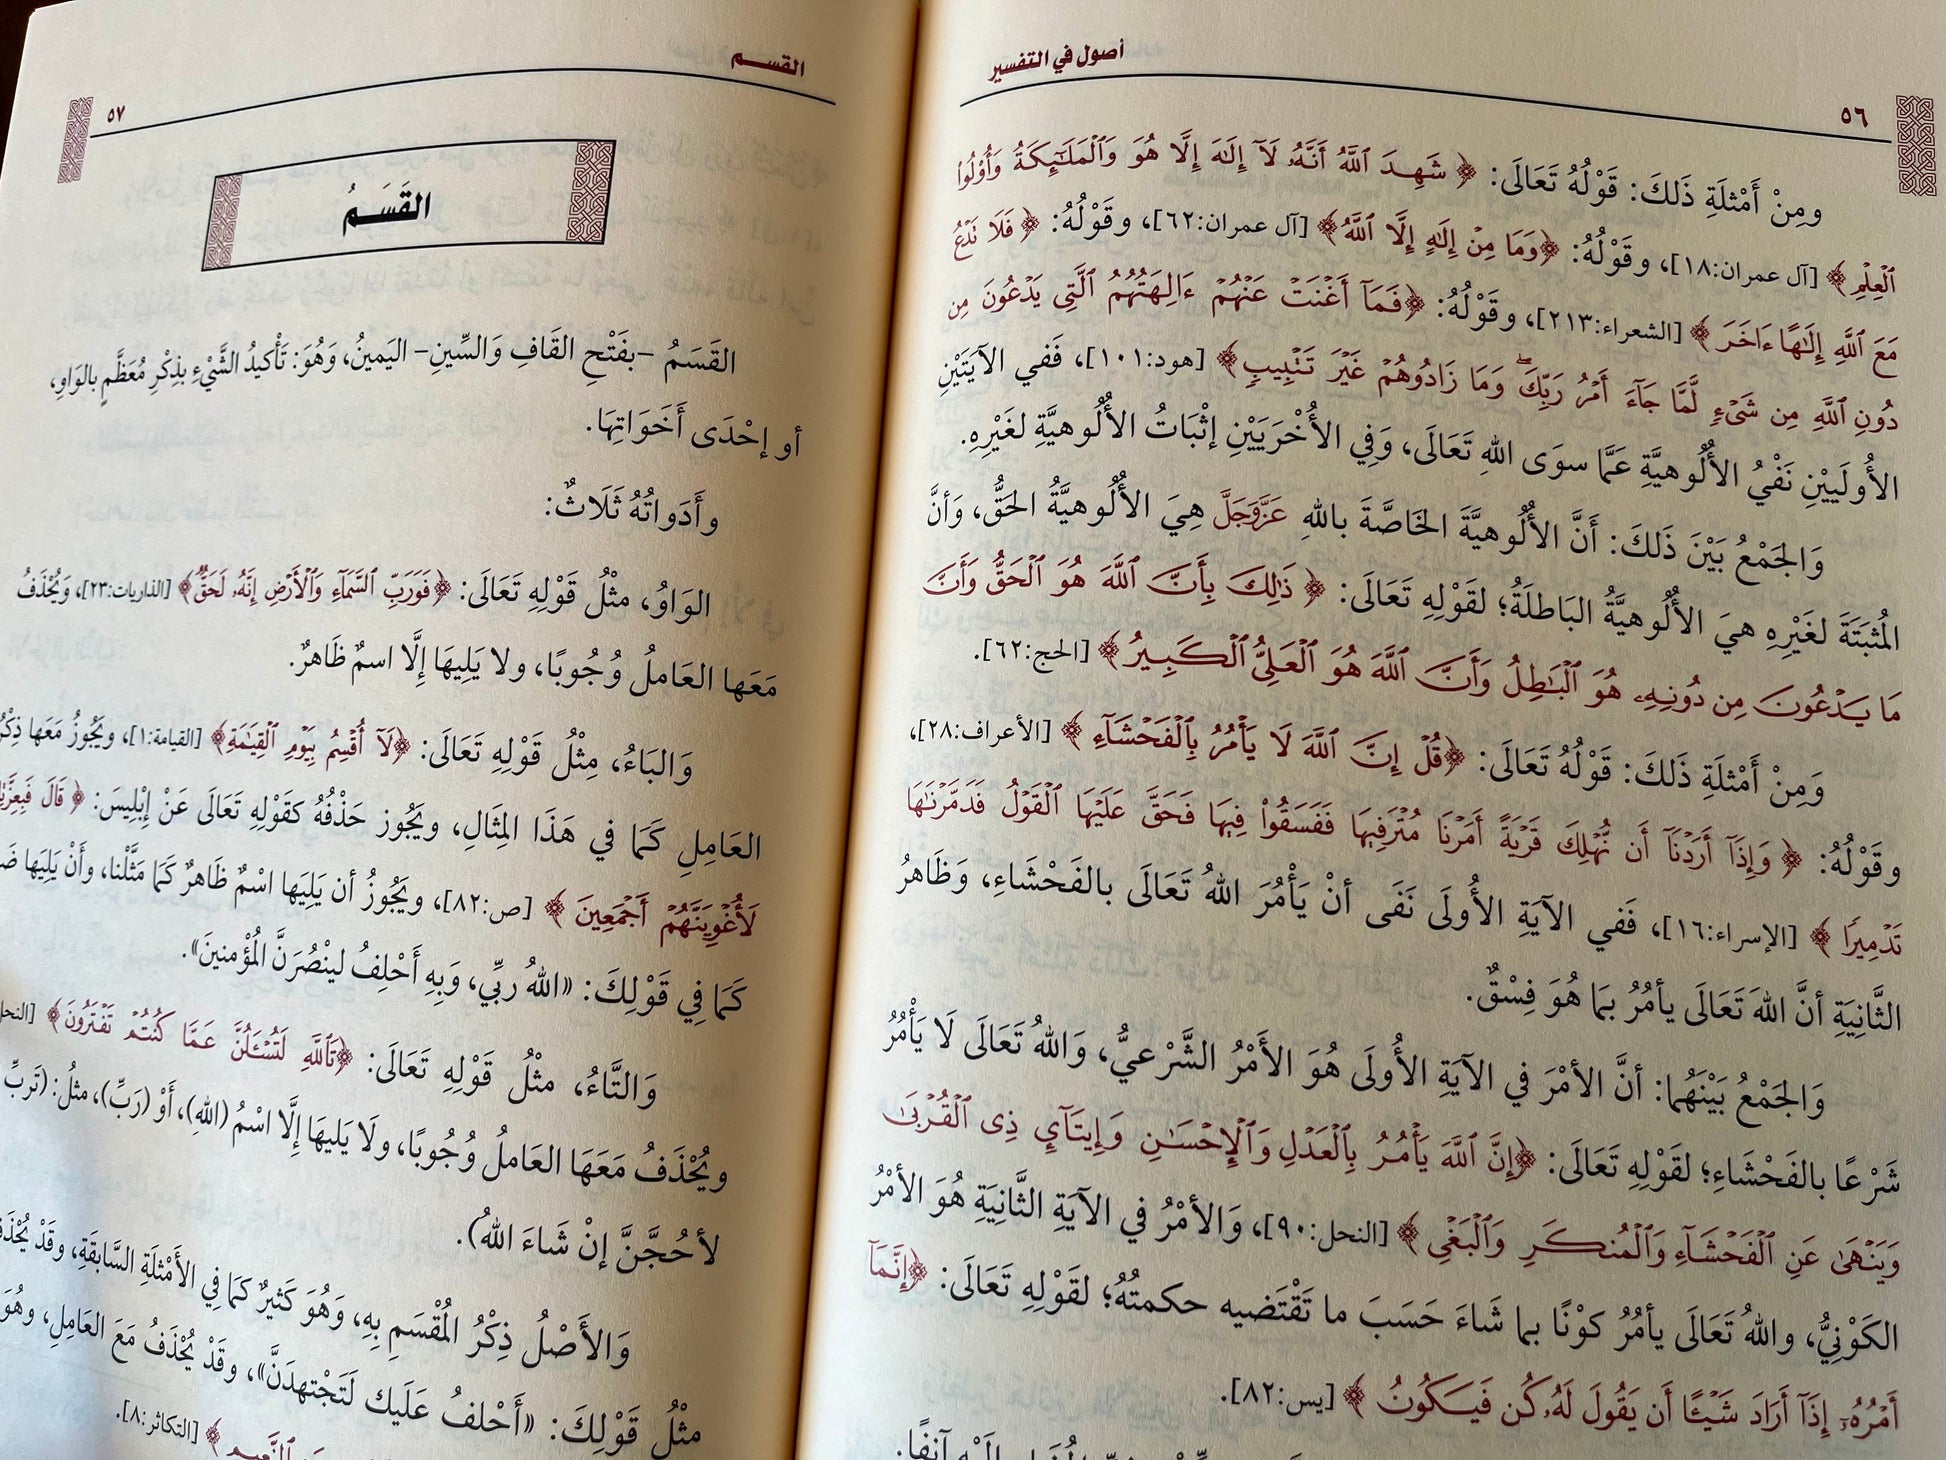 ٥٦
أصول في التفسير
ومِنْ أَمْثلَةِ ذَلكَ: قَوْلُهُ تَعَالَى: ﴿ شَهِدَ ٱللَّهُ أَنَّهُۥ لَآ إِلَٰهَ إِلَّا هُوَ وَٱلْمَلَٰٓئِكَةُ وَأُو۟لُوا۟
ٱلْعِلْمِ ﴾ [آل عمران:١٨]، وقَوْلُهُ: ﴿وَمَا مِنْ إِلَٰهٍ إِلَّا ٱللَّهُ﴾ [آل عمران:٦٢]، وقَوْلُهُ: ﴿ فَلَا تَدْعُ
مَعَ ٱللَّهِ إِلَٰهًا ءَاخَرَ ﴾ [الشعراء:٢١٣]، وقَوْلُهُ: ﴿فَمَآ أَغْنَتْ عَنْهُمْ ءَالِهَتُهُمُ ٱلَّتِى يَدْعُونَ مِن
دُونِ ٱللَّهِ مِن شَىْءٍ لَّمَّا جَآءَ أَمْرُ رَبِّكَ ۖ وَمَا زَادُوهُمْ غَيْرَ تَتْبِيبٍ﴾ [هود:١٠١]، فَفي الآيَتَيْنِ
الأُولَيَيْنِ نَفْيُ الأُلُوهيَّةِ عَمَّا سوَى اللهِ تَعَالَى، وَفِي الأُخْرَيَيْنِ إثْبَاتُ الأُلُوهيَّةِ لغَيْرِهِ.
وَالجَمْعُ بَيْنَ ذَلكَ: أَنَّ الأُلُوهيَّةَ الخَاصَّةَ باللهِ عَزَّوَجَلَّ هِيَ الأُلُوهيَّةُ الحَقُّ، وَأنَّ
المُثبَتَةَ لغَيْرِهِ هيَ الأُلُوهيَّةُ البَاطلَةُ؛ لقَوْلِهِ تَعَالَى: ﴿ ذَٰلِكَ بِأَنَّ ٱللَّهَ هُوَ ٱلْحَقُّ وَأَنَّ
مَا يَدْعُونَ مِن دُونِهِۦ هُوَ ٱلْبَٰطِلُ وَأَنَّ ٱللَّهَ هُوَ ٱلْعَلِىُّ ٱلْكَبِيرُ ﴾ [الحج:٦٢].
وَمِنْ أَمْثلَةِ ذَلكَ: قَوْلُهُ تَعَالَى: ﴿قُلْ إِنَّ ٱللَّهَ لَا يَأْمُرُ بِٱلْفَحْشَآءِ ﴾ [الأعراف:٢٨]،
وقَوْلُهُ: ﴿ وَإِذَآ أَرَدْنَآ أَن نُّهْلِكَ قَرْيَةً أَمَرْنَا مُتْرَفِيهَا فَفَسَقُوا۟ فِيهَا فَحَقَّ عَلَيْهَا ٱلْقَوْلُ فَدَمَّرْنَٰهَا
تَدْمِيرًا ﴾ [الإسراء:١٦]، فَفي الآيَةِ الأُولَى نَفَى أنْ يَأْمُرَ اللهُ تَعَالَى بالفَحْشَاءِ، وَظَاهرُ
الثَّانِيَةِ أنَّ اللهَ تَعَالَى يأمُرُ بمَا هُوَ فِسْقٌ.
وَالجَمْعُ بَيْنَهُما: أنَّ الأمْرَ في الآيَةِ الأُولَى هُوَ الأَمْرُ الشَّرْعيُّ، وَاللهُ تَعَالَى لَا يَأْمُرُ
شَرْعًا بالفَحْشَاءِ؛ لقَوْلِهِ تَعَالَى: ﴿إِنَّ ٱللَّهَ يَأْمُرُ بِٱلْعَدْلِ وَٱلْإِحْسَٰنِ وَإِيتَآئِ ذِى ٱلْقُرْبَىٰ
وَيَنْهَىٰ عَنِ ٱلْفَحْشَآءِ وَٱلْمُنكَرِ وَٱلْبَغْىِ ﴾ [النحل:٩٠]، وَالأمْرُ في الآيَةِ الثَّانِيَةِ هُوَ الأمْرُ
الكَوْنِيُّ، واللهُ تَعَالَى يأمُرُ كوْنًا بما شَاءَ حَسَبَ ما تَقْتَضيه حكمتُهُ؛ لقَوْلِهِ تَعَالَى: ﴿إِنَّمَآ
أَمْرُهُۥٓ إِذَآ أَرَادَ شَيْـًٔا أَن يَقُولَ لَهُۥ كُن فَيَكُونُ ﴾ [يس:٨٢].
إلَيْهِ آنفًا.
القســـم
٥٧
القَسَـــمُ
القَسَمُ –بفَتْحِ القَافِ وَالسِّينِ– اليَمينُ، وَهُوَ: تَأْكيدُ الشَّيْءِ بذِكْرِ مُعَظَّمٍ بالوَاوِ،
أو إحْدَى أَخَوَاتِهَا.
وأَدَواتُهُ ثَلَاثٌ:
الوَاوُ، مثْلُ قَوْلِهِ تَعَالَى: ﴿فَوَرَبِّ ٱلسَّمَآءِ وَٱلْأَرْضِ إِنَّهُۥ لَحَقٌّ﴾ [الذاريات:٢٣]، وَيُحْذَفُ
مَعَها العَاملُ وُجُوبًا، ولا يَلِيهَا إِلَّا اسمٌ ظَاهرٌ.
وَالبَاءُ، مِثْلُ قَوْلِهِ تَعَالَى: ﴿لَآ أُقْسِمُ بِيَوْمِ ٱلْقِيَٰمَةِ﴾ [القيامة:١]، ويَجُوزُ مَعَها ذِكْرُ
العَامِلِ كَمَا في هَذَا المِثَالِ، ويَجُوز حَذْفُهُ كقَوْلِهِ تَعَالَى عَنْ إبْلِيسَ: ﴿ قَالَ
لَأُغْوِيَنَّهُمْ أَجْمَعِينَ ﴾ [ص:٨٢]، ويَجُوزُ أن يَلِيَها اسْمٌ ظَاهرٌ كَمَا مَثَّلْنا، وأنْ يَلِيَها
كَمَا فِي قَوْلِكَ: «اللهُ ربِّي، وَبِهِ أَحْلِفُ لينْصُرَنَّ المُؤْمنينَ».
وَالتَّاءُ، مثْلُ قَوْلِهِ تَعَالَى: ﴿تَٱللَّهِ لَتُسْـَٔلُنَّ عَمَّا كُنتُمْ تَفْتَرُونَ﴾
ويُحْذَفُ مَعَهَا العَاملُ وُجُوبًا، ولَا يَليهَا إِلَّا اسْمُ (اللهِ)، أَوْ (رَبِّ)، مثلُ: (تَربِّ
لأحُجَّنَّ إنْ شَاءَ اللهُ).
وَالأَصْلُ ذِكْرُ المُقْسَمِ بِهِ، وَهُوَ كَثيرٌ كَمَا فِي الأَمْثلَةِ السَّابقَةِ، وقَدْ
مثْلُ قَوْلِكَ: «أَحْلفُ عَلَيك لَتَجْتهدَنَّ»، وقَدْ يُحْذَفُ مَعَ العَاملِ، وهُوَ
ٱلنَّعِيمِ ﴾ [التكاثر:٨].